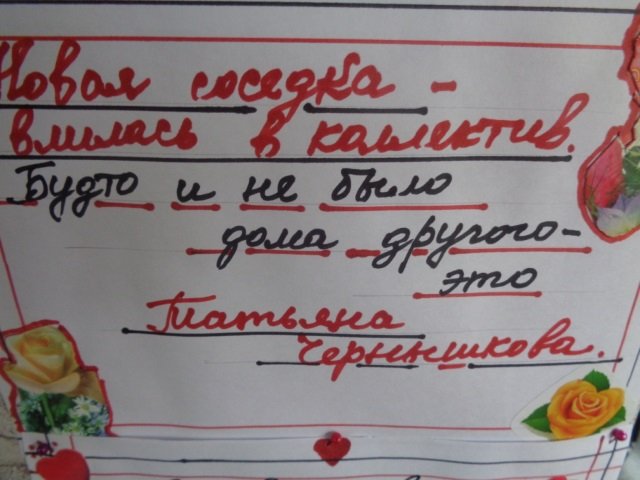 Новая соседка -
влилась в коллектив.
Будто и не было
дома другого-
это
Татьяна
Чернышкова.